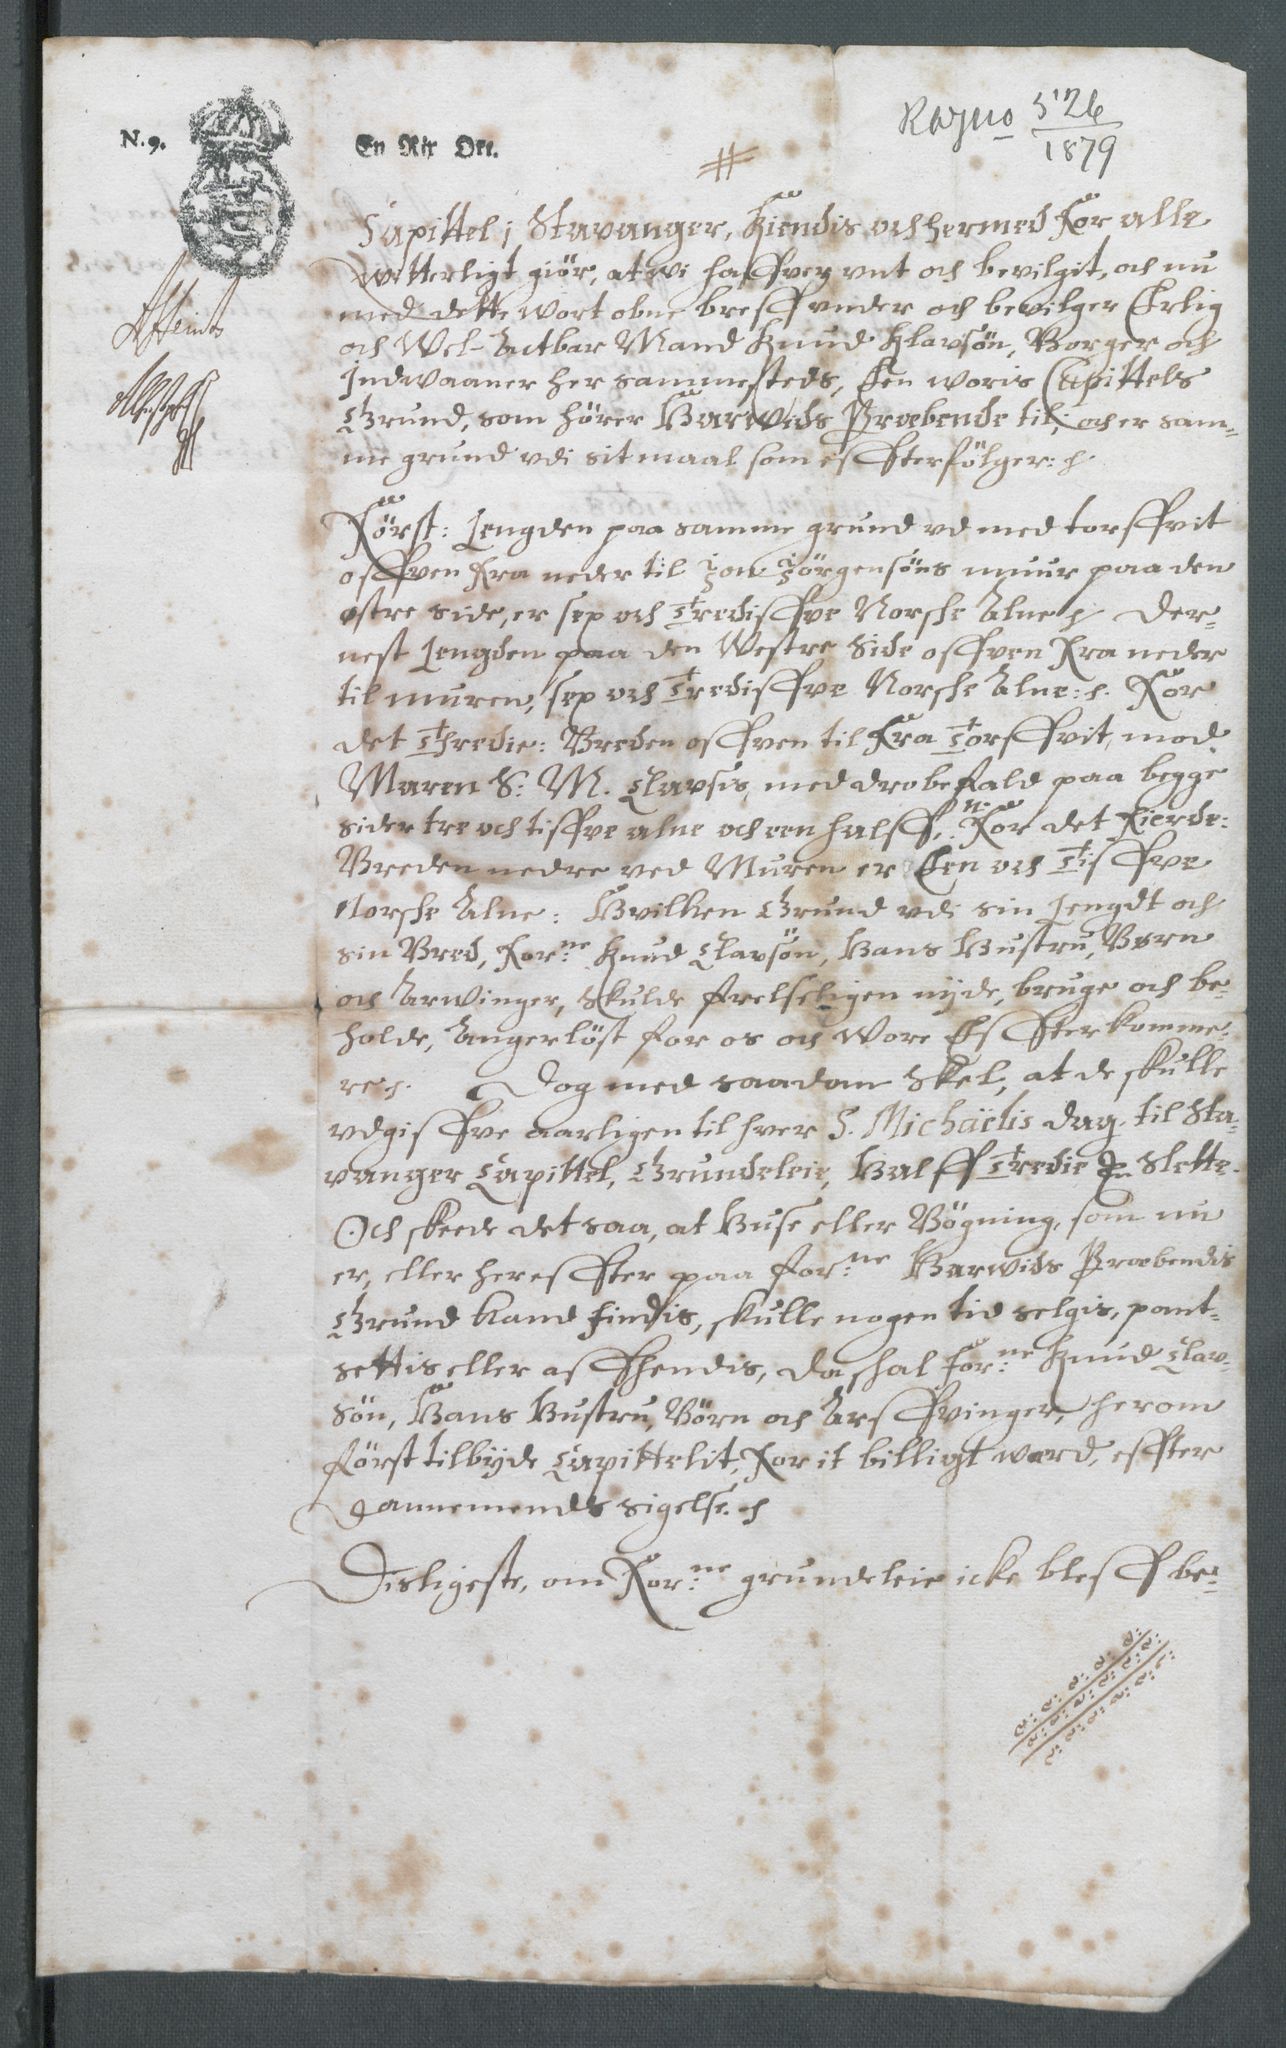 N. 9.
En Rix Ort.
Rayno 526
1879
#
Capittel i Stavanger, Kiendis och hermed For alle
witterligt giör, at wi haffver unt och bevilgit, och nu
med dette wort obne breff under och bevilger Erlig
och Wel-Actbar Mand Knud Klavsön, Borger och
Indwaaner her sammesteds, Een woris Capittels
Grund, som hörer Harwids Præbende til, och er sam-
me grund vdi sit maal som effterfölger:
Först: Lengden paa samme grund vd med torffvit
offven Fra neder til Jon Jörgensöns muur paa den
östre side, er sex och Trediffve Norske Alne. Der-
nest Lengden paa den Westre Side offven Fra neder
til muren, sex och Trediffve Norske Alne: For
det Thredie: Breden offven til Fra Torffvit, mod
Maren S: M. Clavsis, med drobefald paa begge
sider tre och tiffve alne och een halff. For det Fierde:
Breden nedre ved Muren er Een och Tiffve
Norske Alne: Hvilken Grund vdi sin Lengdt och
sin Bred, For:ne Knud Clavsön, Hans Hustru, Börn
och Arwinger, Skulde frelseligen nyde, bruge och be-
holde, Angerlöst for os och Wore Effterkomme-
re. Dog med saadan Skel, at de skulle
vdgiffve aarligen til hver S. Michaëlis dag. til Sta-
vanger Capittel, Grundeleie, Halff Tredie Slette.
Och skeede det saa, at Huse eller Bögning, som nu
er, eller hereffter paa for:ne Harwids Præbendis
Grund kand findis, skulle nogen tid selgis, pant-
settis eller affhendis, da skal For:ne Knud Clav-
sön, Hans Hustru, Börn och Arffvinger, herom
först tilbyde Capittelit, For it billigt werd, effter
Dannemends sigelse.
Disligeste, om For:ne grundeleie icke bleff be-